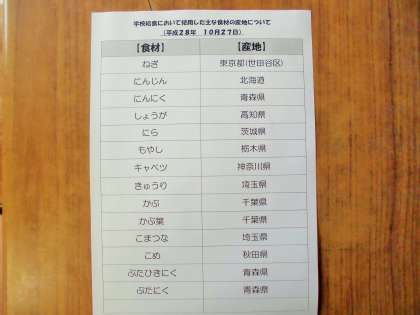 学校給食において使用した主な食材の産地について
(平成28年 10月27日)
【食材】 【産地】
ねぎ 東京都(世田谷区)
にんじん 北海道
にんにく 青森県
しょうが 高知県
にら 茨城県
もやし 栃木県
キャベツ 神奈川県
きゅうり 埼玉県
かぶ 千葉県
かぶ葉 千葉県
こまつな 埼玉県
こめ 秋田県
ぶたひきにく 青森県
ぶたにく 青森県